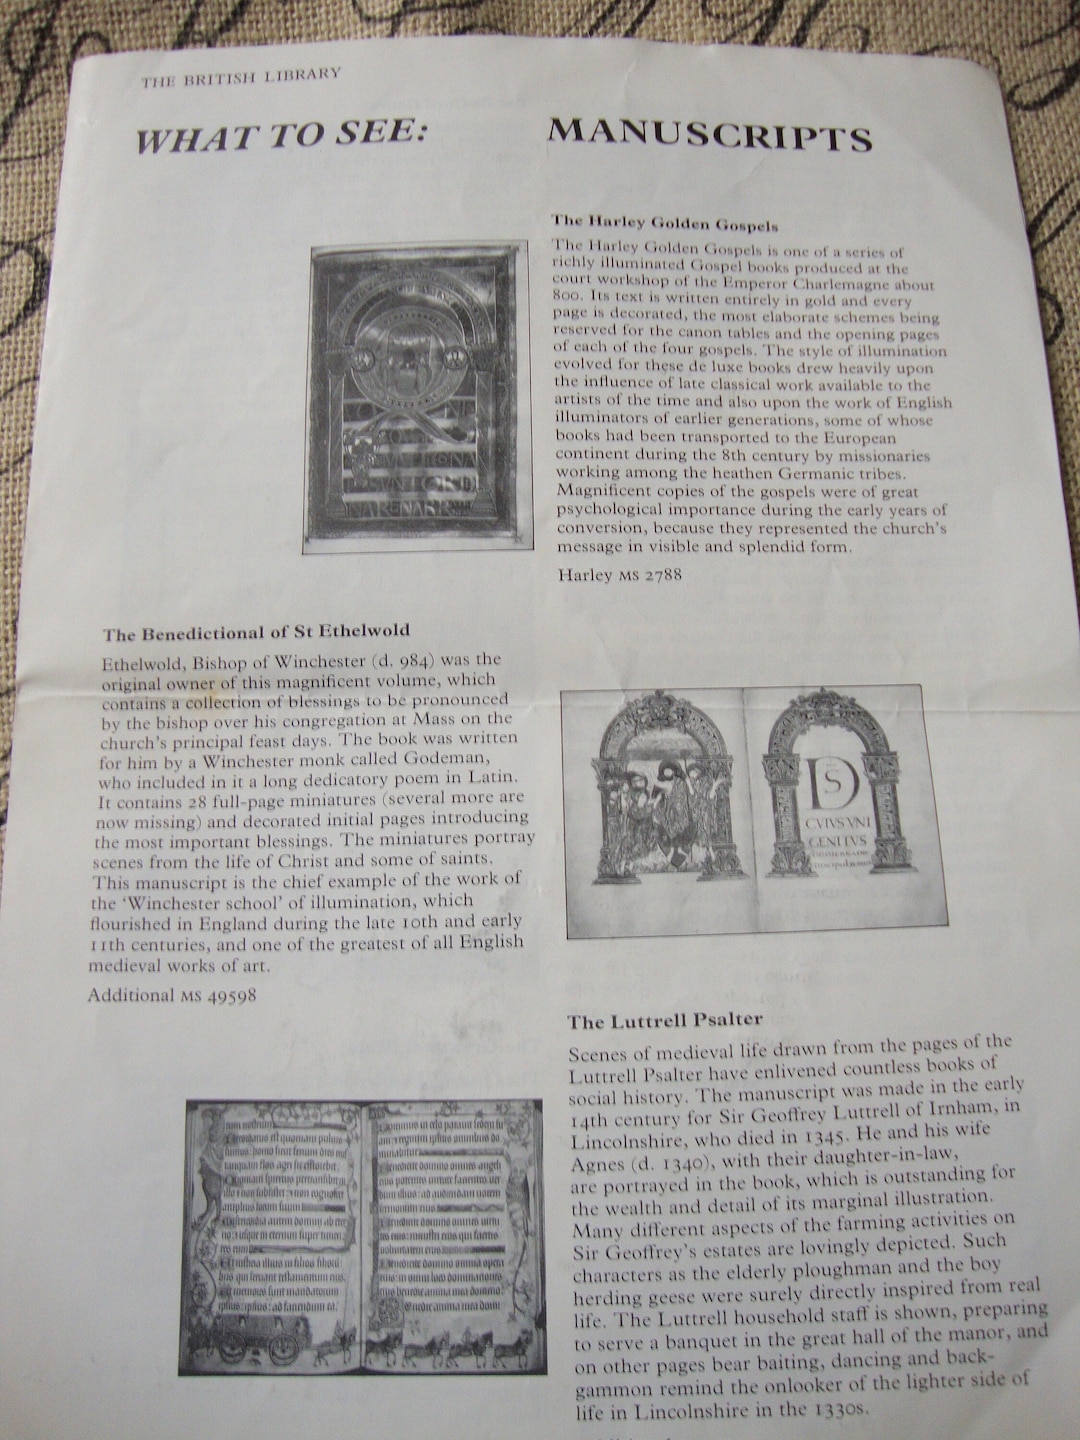 THE BRITISH LIBRARY
WHAT TO SEE: MANUSCRIPTS
The Harley Golden Gospels
The Harley Golden Gospels is one of a series of
richly illuminated Gospel books produced at the
court workshop of the Emperor Charlemagne about
800. Its text is written entirely in gold and every
page is decorated, the most elaborate schemes being
reserved for the canon tables and the opening pages
of each of the four gospels. The style of illumination
evolved for these de luxe books drew heavily upon
the influence of late classical work available to the
artists of the time and also upon the work of English
illuminators of earlier generations, some of whose
books had been transported to the European
continent during the 8th century by missionaries
working among the heathen Germanic tribes.
Magnificent copies of the gospels were of great
psychological importance during the early years of
conversion, because they represented the church's
message in visible and splendid form.
Harley MS 2788
The Benedictional of St Ethelwold
Ethelwold, Bishop of Winchester (d. 984) was the
original owner of this magnificent volume, which
contains a collection of blessings to be pronounced
by the bishop over his congregation at Mass on the
church's principal feast days. The book was written
for him by a Winchester monk called Godeman,
who included in it a long dedicatory poem in Latin.
It contains 28 full-page miniatures (several more are
now missing) and decorated initial pages introducing
the most important blessings. The miniatures portray
scenes from the life of Christ and some of saints.
This manuscript is the chief example of the work of
the 'Winchester school' of illumination, which
flourished in England during the late 10th and early
11th centuries, and one of the greatest of all English
medieval works of art.
Additional MS 49598
DS
CVIVS VNI
GENITVS
The Luttrell Psalter
Scenes of medieval life drawn from the pages of the
Luttrell Psalter have enlivened countless books of
social history. The manuscript was made in the early
14th century for Sir Geoffrey Luttrell of Irnham, in
Lincolnshire, who died in 1345. He and his wife
Agnes (d. 1340), with their daughter-in-law,
are portrayed in the book, which is outstanding for
the wealth and detail of its marginal illustration.
Many different aspects of the farming activities on
Sir Geoffrey's estates are lovingly depicted. Such
characters as the elderly ploughman and the boy
herding geese were surely directly inspired from real
life. The Luttrell household staff is shown, preparing
to serve a banquet in the great hall of the manor, and
on other pages bear baiting, dancing and back-
gammon remind the onlooker of the lighter side of
life in Lincolnshire in the 1330s.